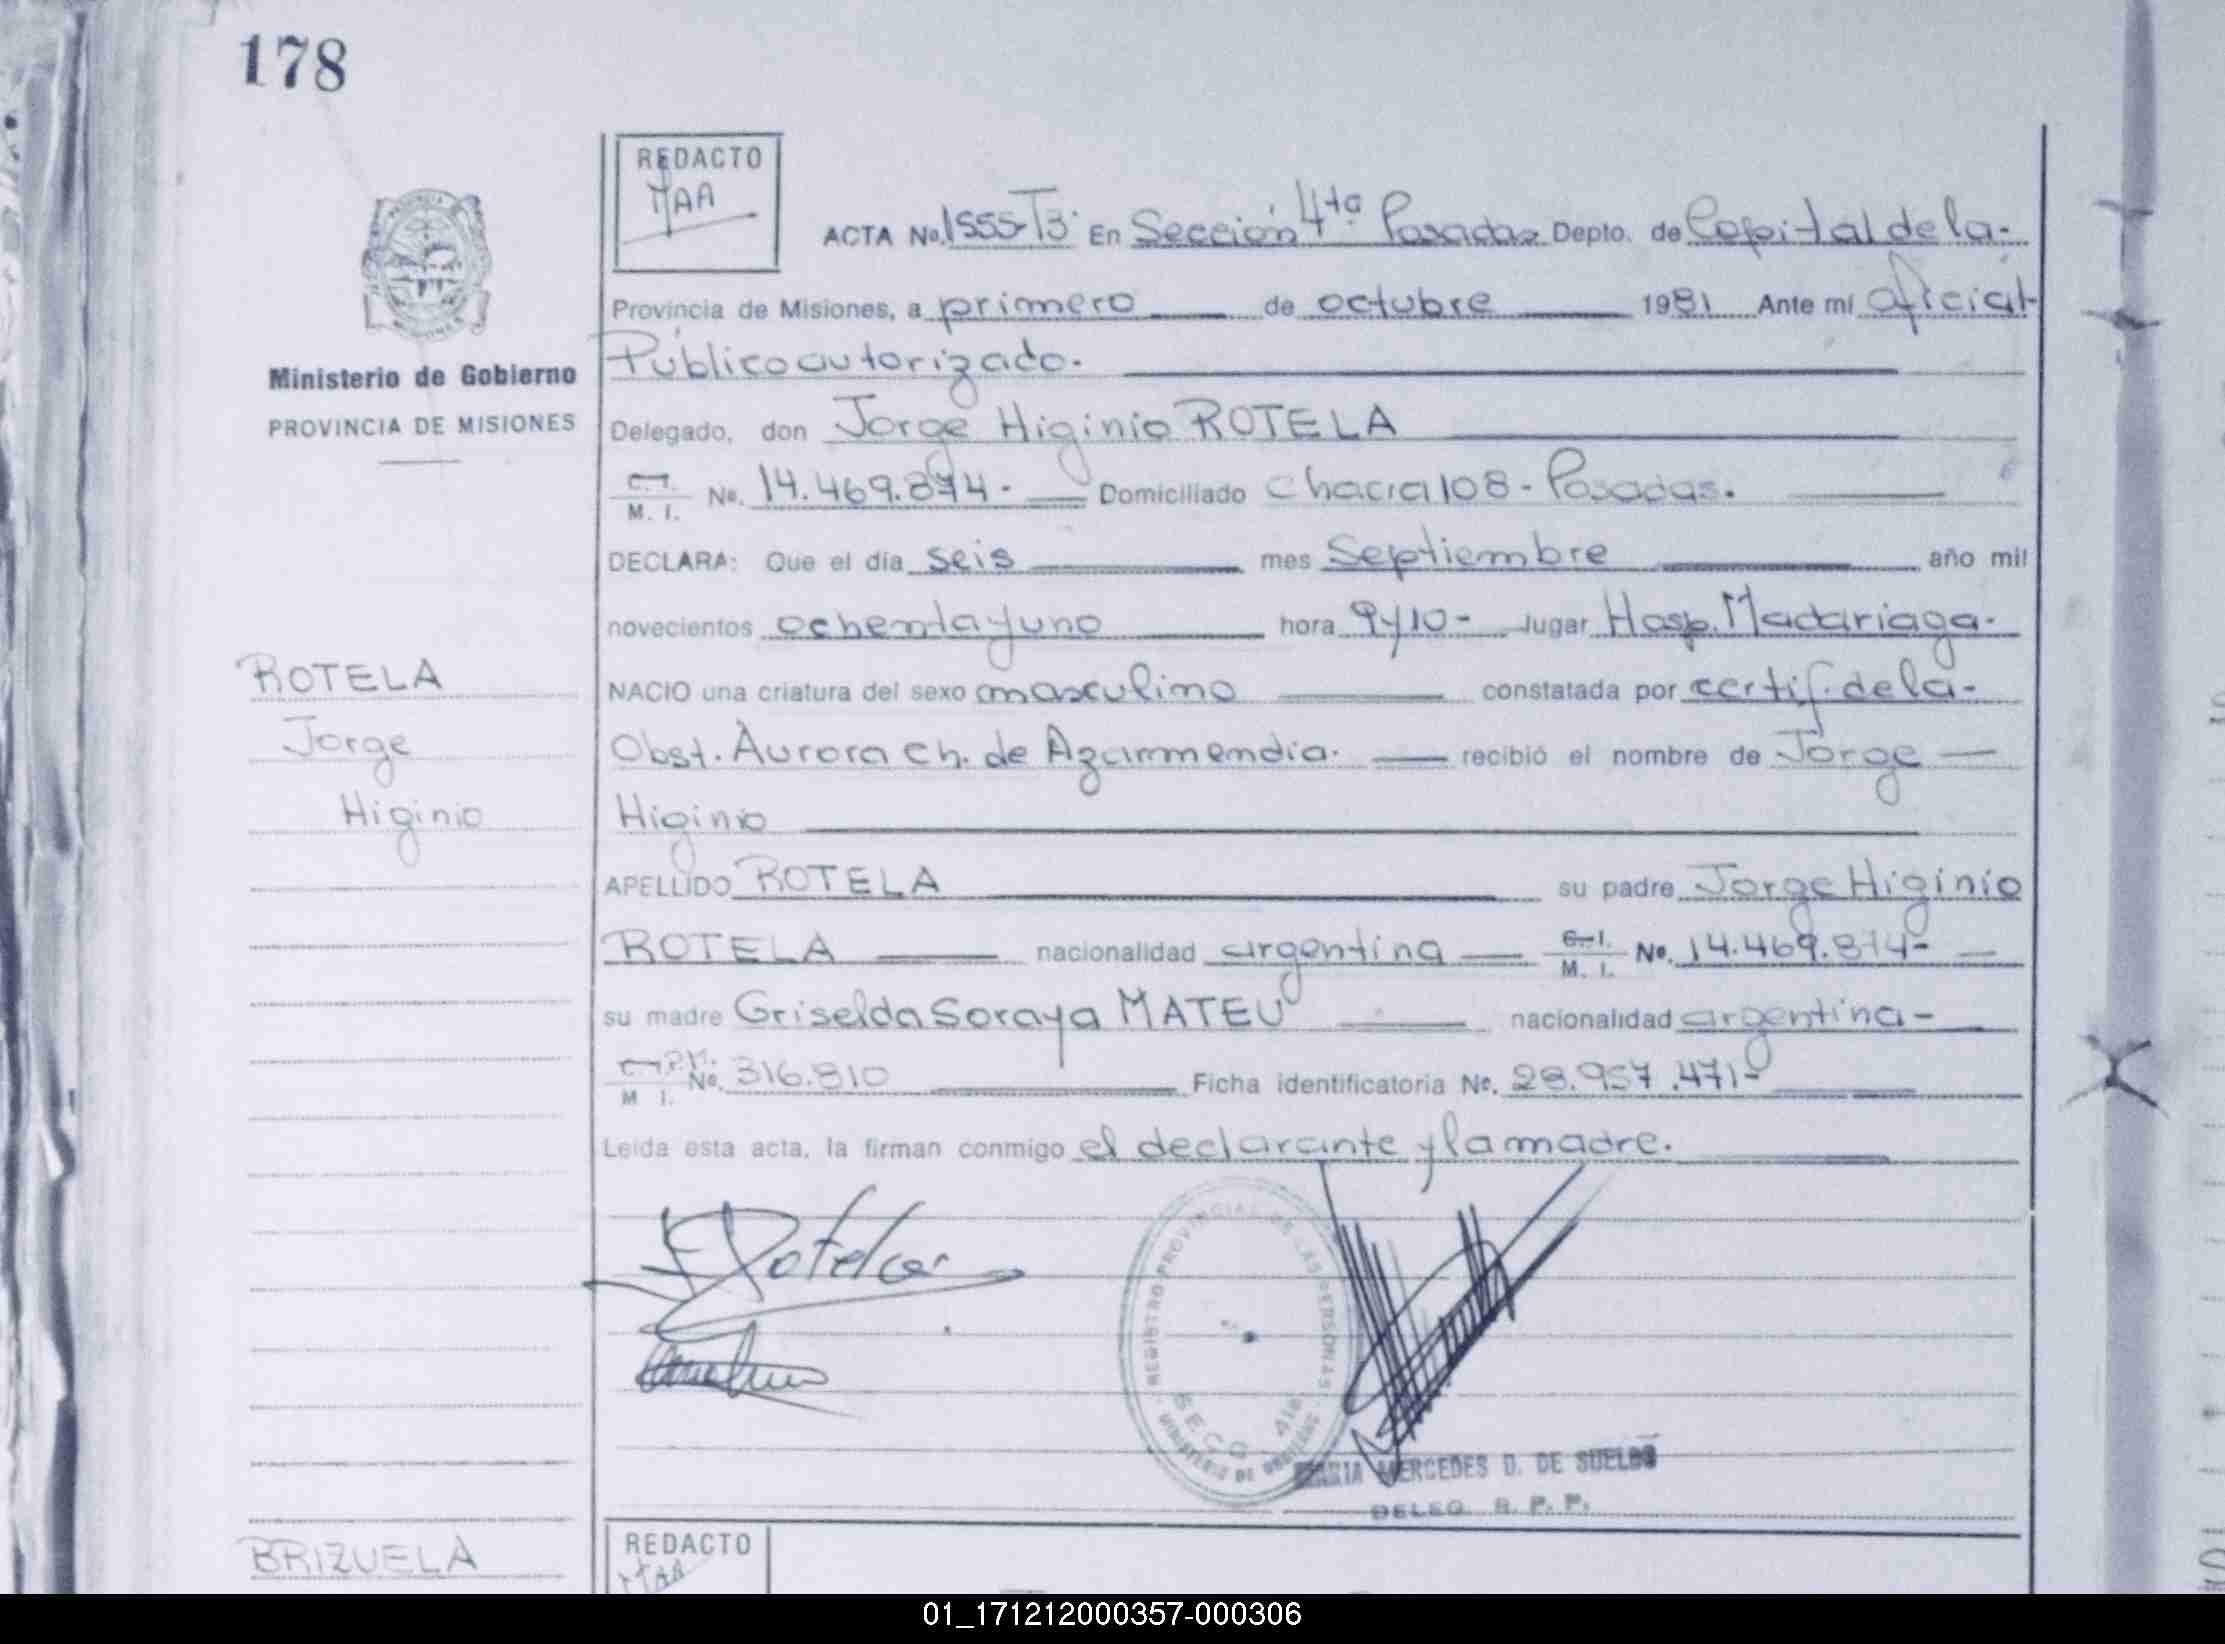 178
REDACTO
MAA
ACTA No. 1555-T3· En Sección 4ta Posadas Depto. de Capital de la-
Provincia de Misiones, a primero de octubre 1981 Ante mí oficial
Público autorizado.
Ministerio de Gobierno
PROVINCIA DE MISIONES
Delegado, don Jorge Higinio ROTELA
C. I. M. I. No. 14.469.874- Domiciliado Chacra 108 - Posadas.
DECLARA: Que el día seis mes Septiembre año mil
novecientos ochenta y uno hora 9y10- lugar Hosp. Madariaga-
ROTELA
Jorge
Higinio
NACIO una criatura del sexo masculino constatada por certif. de la-
Obst. Aurora Ch. de Azarmendia. recibió el nombre de Jorge
Higinio
APELLIDO ROTELA su padre Jorge Higinio
ROTELA nacionalidad argentina C. I. M. I. No. 14.469.874-
su madre Griselda Soraya MATEU nacionalidad argentina-
M I. No. 316.810 Ficha identificatoria No. 28.957.471-
Leida esta acta, la firman conmigo el declarante y la madre.
Rotela
REGISTRO PROVINCIAL DE LAS PERSONAS
SECC. 4ta
MINISTERIO DE GOBIERNO
MARIA MERCEDES D. DE SUELDO
DELEG. R. P. P.
BRIZUELA
REDACTO
MAA
01_171212000357-000306